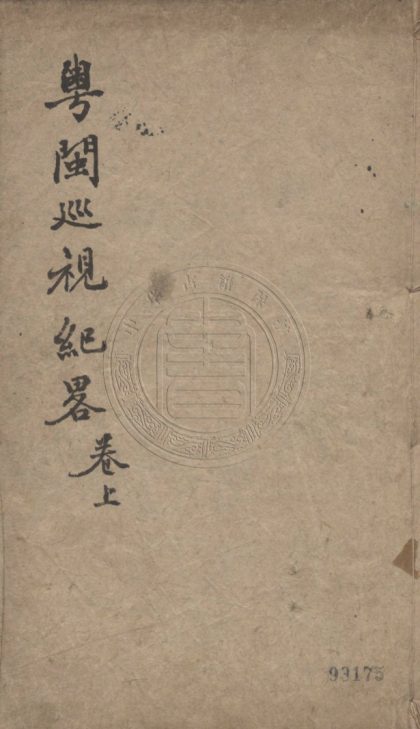 粤閩巡視紀畧
卷上
93175